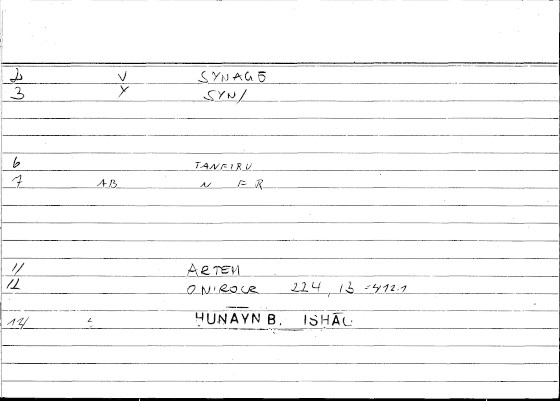 2 V SYNAGŌ
3 Y SYN/
6 TANFIRU
7 AB N F R
11 ARTEM
12 ONIROCR 224, 13 = 412.1
14 ḤUNAYN B. ISḤĀQ